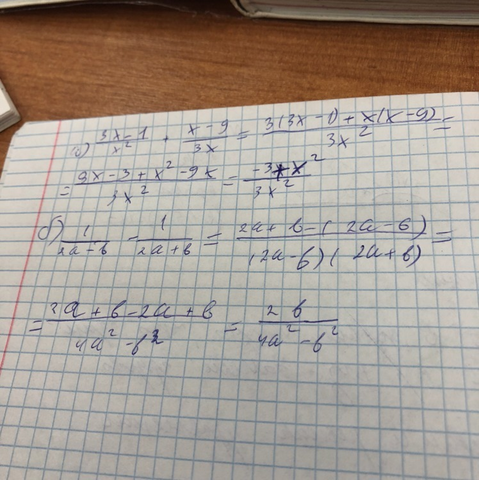 а) (3x-1)/x² + (x-9)/3x = (3(3x-1)+x(x-9))/3x² =
= (9x-3+x²-9x)/3x² = (-3+x²)/3x²
б) 1/(2a-b) - 1/(2a+b) = (2a+b-(2a-b))/((2a-b)(2a+b)) =
= (2a+b-2a+b)/(4a²-b²) = 2b/(4a²-b²)